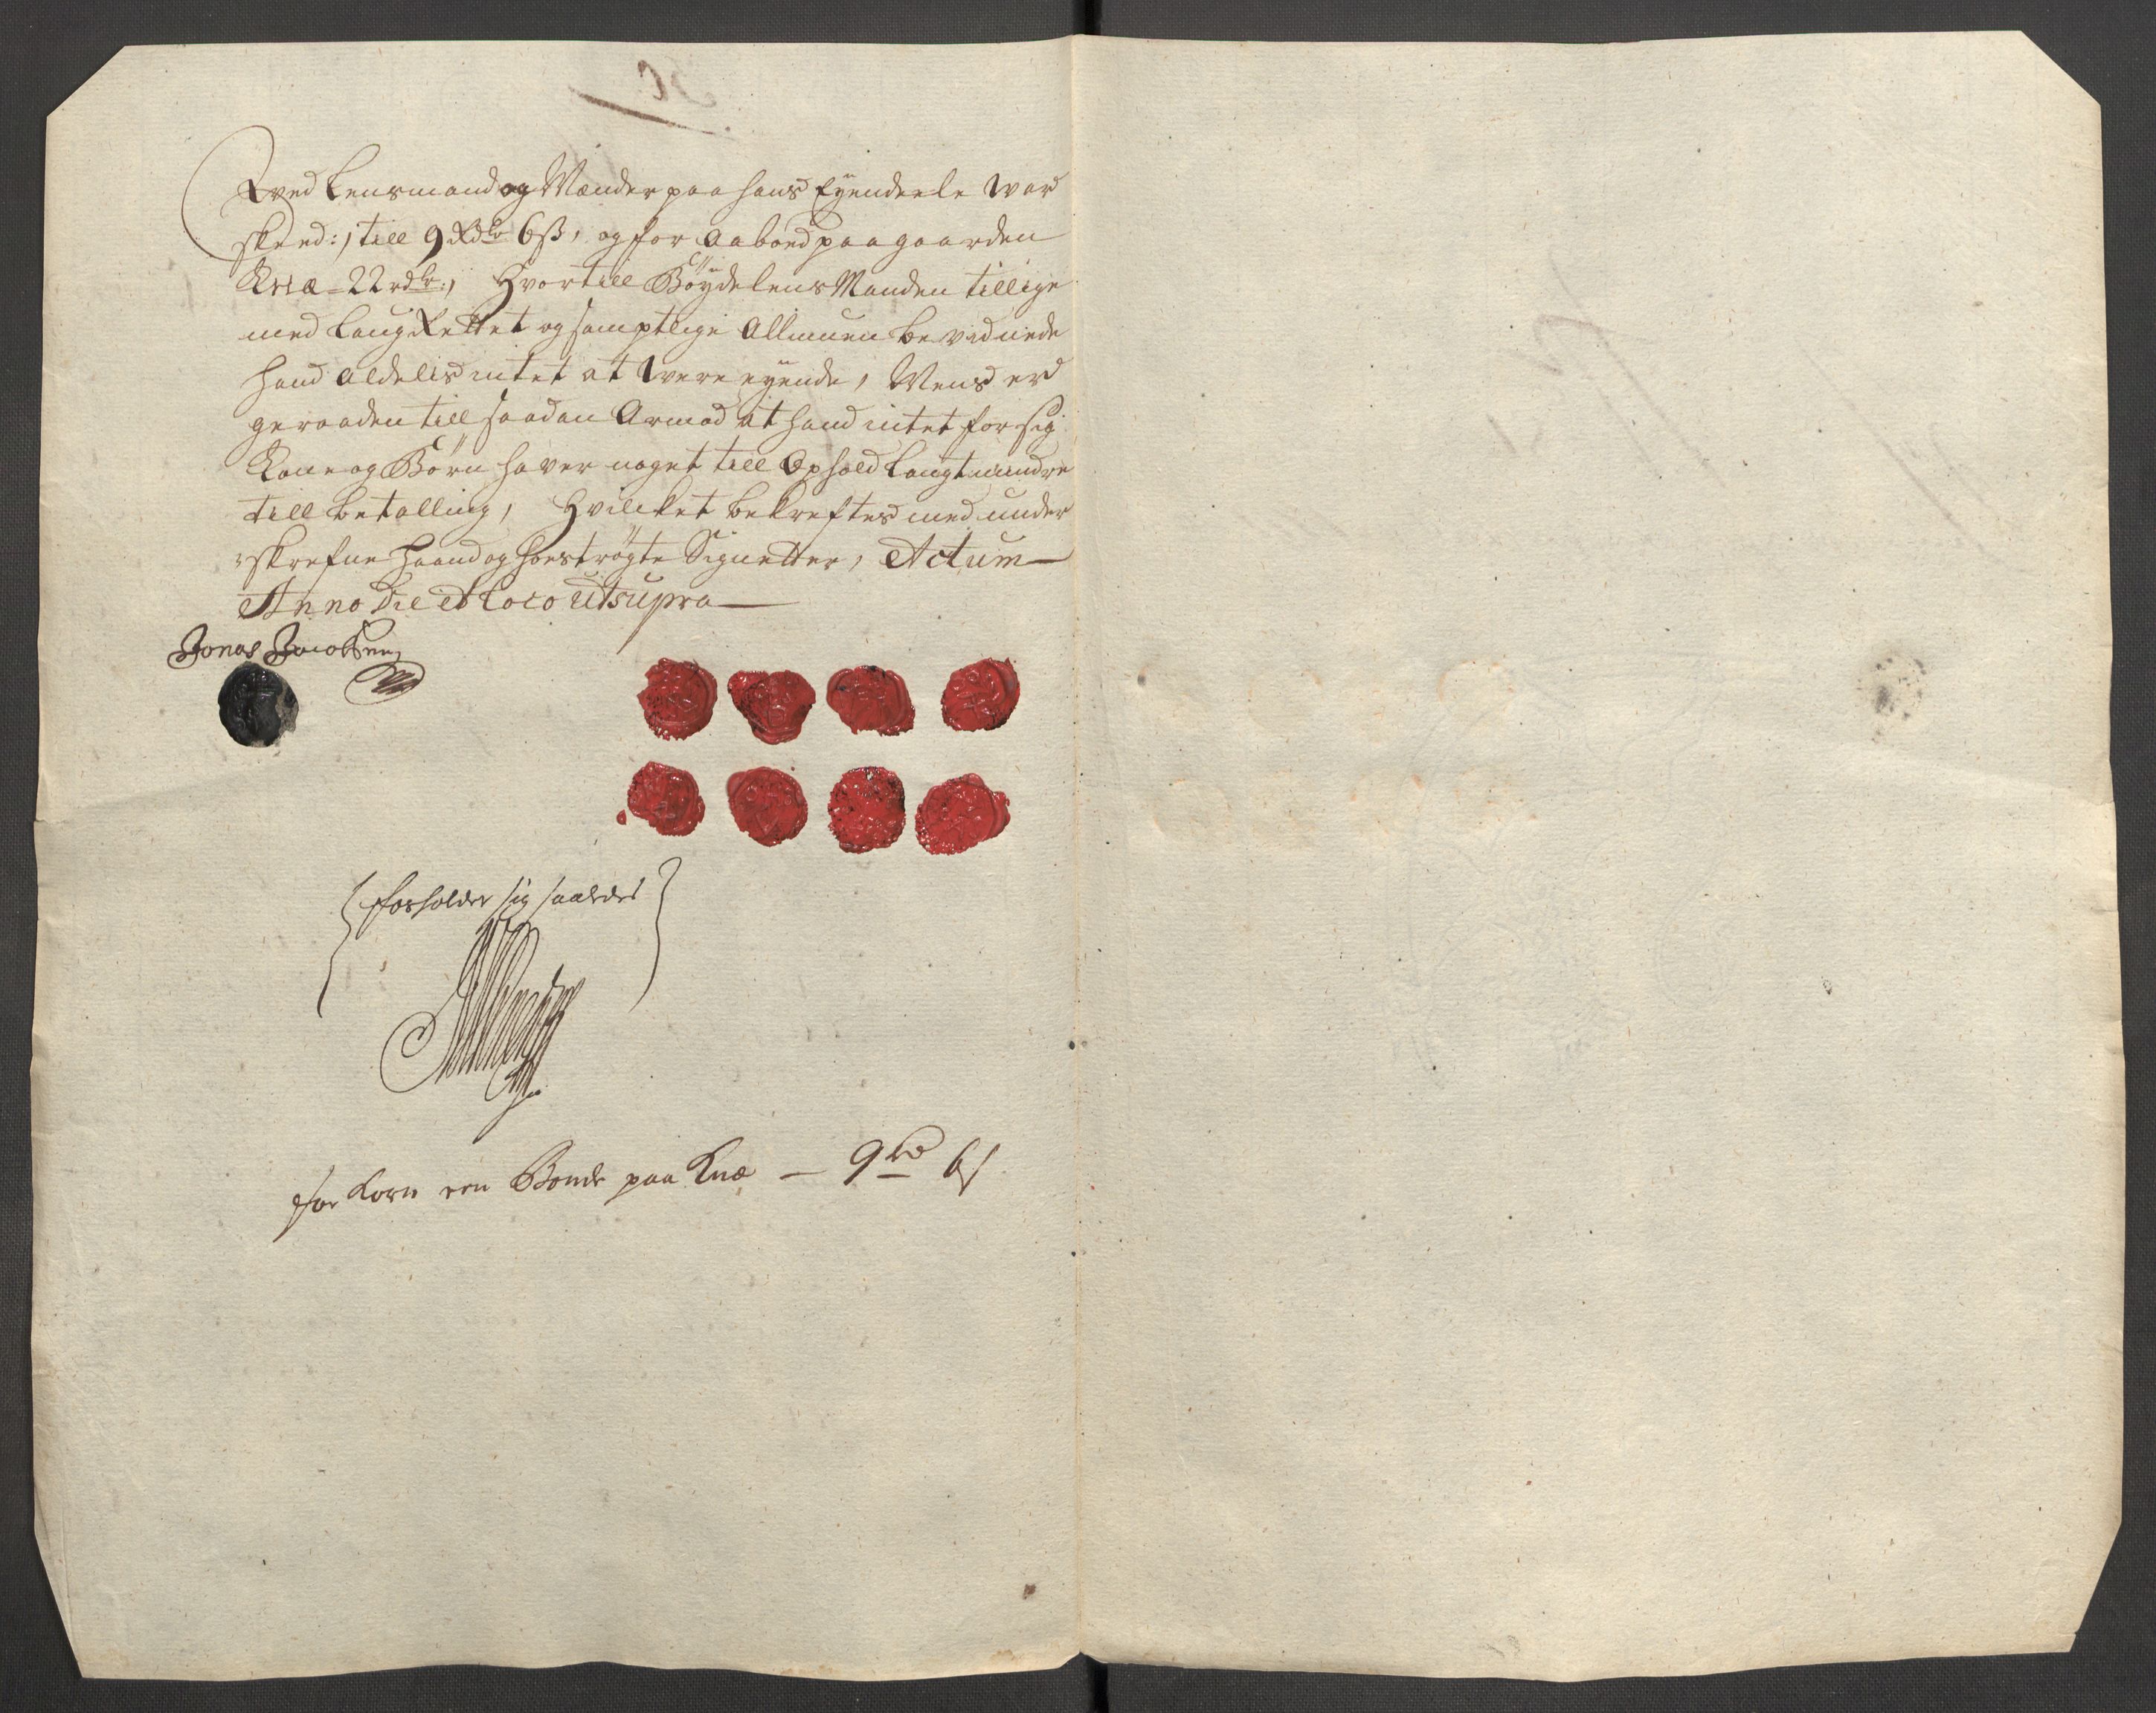 Ved Lensmand og Mænder paa hans Eyendeele war
skeed :/ till 9 Rdlr 6 ß, og for Aaboed paa gaarden
Knæ - 22 rdlr:, Hvortill Böÿdelens Manden tillige
med LaugRettet og samptlige Allmuen bevidnede
hand aldelis intet at Were eÿende, Mens er
geraaden till saadan Armod at hand intet for sig
Kone og Börn haver noget till Ophold langt mindre
till betalling, Hvilcket bekreftes med under
skrefne haand og hoeströgte Signetter, Actum
Anno Die et Loco ut supra
Jonas Jacobsen
forholder sig saaledes
for Korn een Bonde paa Knæ — 9 rd 6 s